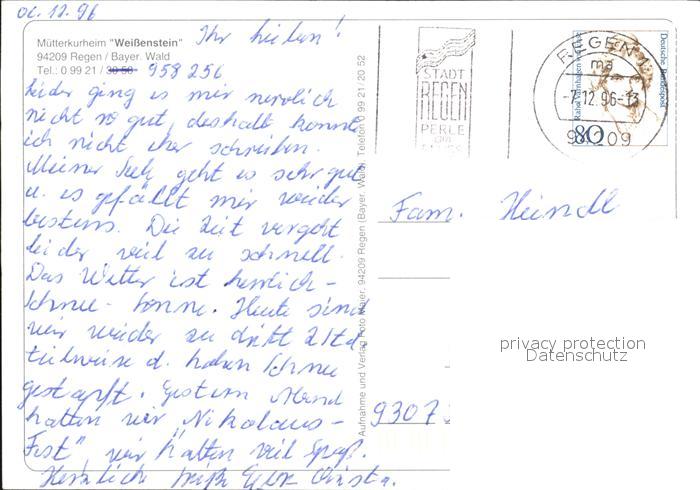 06.12.96
Ihr Lieben!
Mütterkurheim "Weißenstein"
94209 Regen / Bayer. Wald
Tel.: 0 99 21 / 958 256
Leider ging es mir nervlich
nicht so gut, deshalb konnte
ich nicht eher schreiben.
Meiner Seele geht es sehr gut
u. es gefällt mir wieder
bestens. Die Zeit vergeht
leider viel zu schnell.
Das Wetter ist herrlich -
Schnee - Sonne. Heute sind
wir wieder zu dritt 2 Std
teilweise d. hohen Schnee
gestapft. Gestern Abend
hatten wir "Nikolaus-
Fest", wir hatten viel Spaß.
Herzlich grüßt Euch Christa.
Aufnahme und Verlag Foto Maier, 94209 Regen (Bayer. Wald), Telefon 0 99 21/20 52
STADT
REGEN
PERLE
REGEN
ma
-7.12.96-13
94209
Deutsche Bundespost
Rahel Varnhagen von Ense
80
Fam. Heindl
9307
privacy protection
Datenschutz